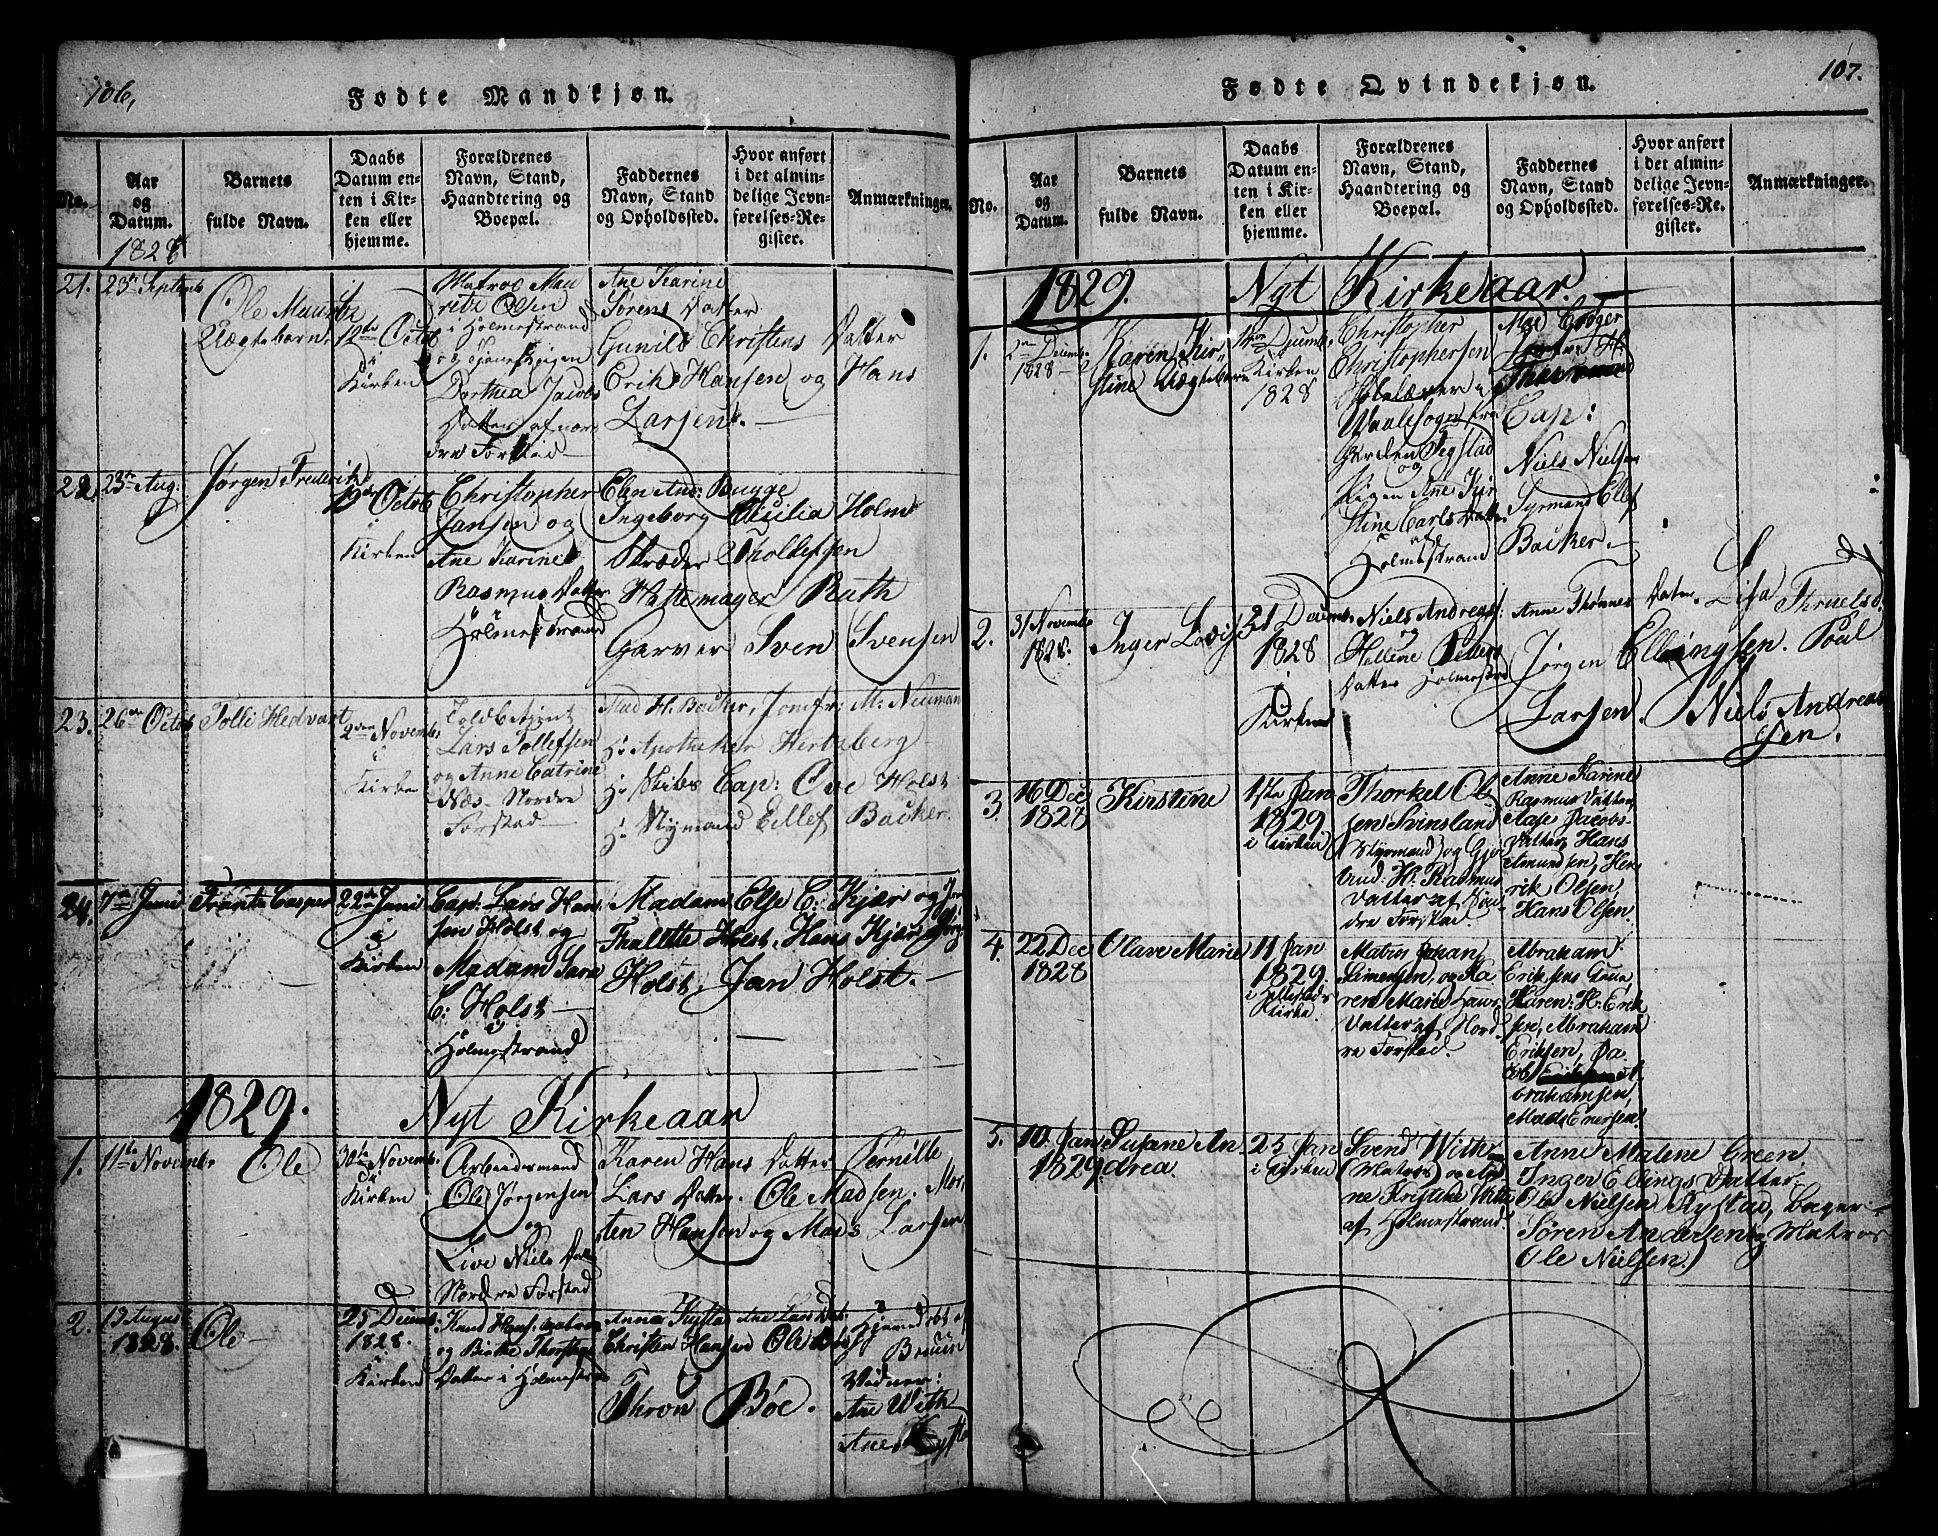 106,
Fødte Mandkjøn.
No.
Aar og Datum.
Barnets fulde Navn.
Daabs Datum enten i Kirken eller hjemme.
Forældrenes Navn, Stand, Haandtering og Boepæl.
Faddernes Navn, Stand og Opholdssted.
Hvor anført i det almindelige Jevnførelses-Register.
Anmærkninger.
1828
21. 23 Septemb
Ole Mauritz
Uægtebarn.
12te Octob
i
Kirken
Matros Mau
ritz Olsen
i Holmestrand
og Pigen
Dorthea Jacobs
Datter af nor
dre Forstad
Ane Karine
Sørens Datter
Gunild Christens Datter
Erik Hansen og Hans
Larsen.
22. 23de Aug:
Jørgen Frederik
19de Octob
i
Kirken
Christopher
Jansen og
Ane Karine
Rasmus Datter
Holmestrand
Elen Ans: Bugge
Ingeborg Cicilia Holm
Skræder Tholefsen
Hattemager Ruth
Garver Sven Svensen
23. 26de Octob
Tolli Hedvart
2den Novemb.
i
Kirken
Lars Tollefsen
og Anne Catrine
Næs Nordre
Forstad
Mad H. Backer, Jomfr: M. Neumann
Hr Apotheker Hertzberg
Hr Skibs Cap: Ove Holst
Hr Styrmand Eillef Backer.
24. 7de Juni
Frantz Casper
22de Juni
i
Kirken
Cap: Lars Han
sen Holst og
Madam Sara
C: Holst
i
Holmestrand
Madam Else C: Kjær og Jom
Thalette Holst. Hans Kjær Jørg
Holst, Jan Holst.
1829. Nyt Kirkeaar
1. 11te Novemb.
Ole
30te Novemb.
i
Kirken
Arbeidsmand
Ole Jørgensen
og
Live Niels Datt
Nordre Forstad
Karen Hans Datter Pernille
Lars Datter. Ole Madsen. Mor
ten Hansen og Mads Larsen
2. 13 August
1828.
Ole
25 Decemb
1828.
i
Kirken
Knud Hans: Matros
og Birthe Thorsteds
Datter i Holmestrand
Anna Kystad Ane Lars Dat
Christen Hansen Ole
Thron Böe.
Hjemedøbt af
Bruun
Vidner:
Ane With
Ane Kysta
107.
Fødte Qvindekjøn.
No.
Aar og Datum.
Barnets fulde Navn.
Daabs Datum enten i Kirken eller hjemme.
Forældrenes Navn, Stand, Haandtering og Boepæl.
Faddernes Navn, Stand og Opholdssted.
Hvor anført i det almindelige Jevnførelses-Register.
Anmærkninger.
1829. Nyt Kirkeaar.
1.
Decemb.
1828
Karen Kir
stine Uægtebarn
Decemb.
Kirken
1828
Christopher
Christophersen
Skolelærer i
Waale Sogn fra
Gaarden
og
Pigen Ane Kir
stine Carls Datter
af
Holmestrand
Cap:
Niels Nielsen
Styrmand Ellef
Backer.
2. 3 Novemb
1828.
Inger Lovise
21 Decemb.
1828
i
Kirken
Niels Andreas:
og
Hellene Peders
Datter Holmestrd
Anne Thønnes Datter. Lisa Thruelsd.
Jørgen Ellingsen. Poul
Larsen. Niels Andrea
sen.
3. 16 Dec
1828
Kirstine
1ste Jan
1829
i Kirken
Thorkel Ol
sen Svinsland
(Styrmand) og Gjer
trud: H: Rasmus
Datter af Søn
dre Forstad.
Anne Karine
Rasmus Datter,
Aase Jacobs
Datter, Hans
Amundsen, Hen
rik Olsen,
Hans Olsen.
4. 22 Dec
1828
Olave Marie
11 Jan
1829
i Hillestads
Kirke.
Matros Johan
Simensen, og Ka
ren Marie Laur
Datter af Nord
re Forstad.
Abraham
Eriksens
Karen: H: Erik
sen, Abraham
Eriksen, Ja
cob A
brahamsen,
Mads Enersen.
5. 10 Jan
1829.
Susane An
drea.
25 Jan
i Kirken
Svend With
(Matros) og An
ne Kristine With
af Holmestrand.
Anne Malene Green
Inger Ellings Datter
Ole Nielsen Kystad, Bager
Søren Andersen og Matros
Ole Nielsen.